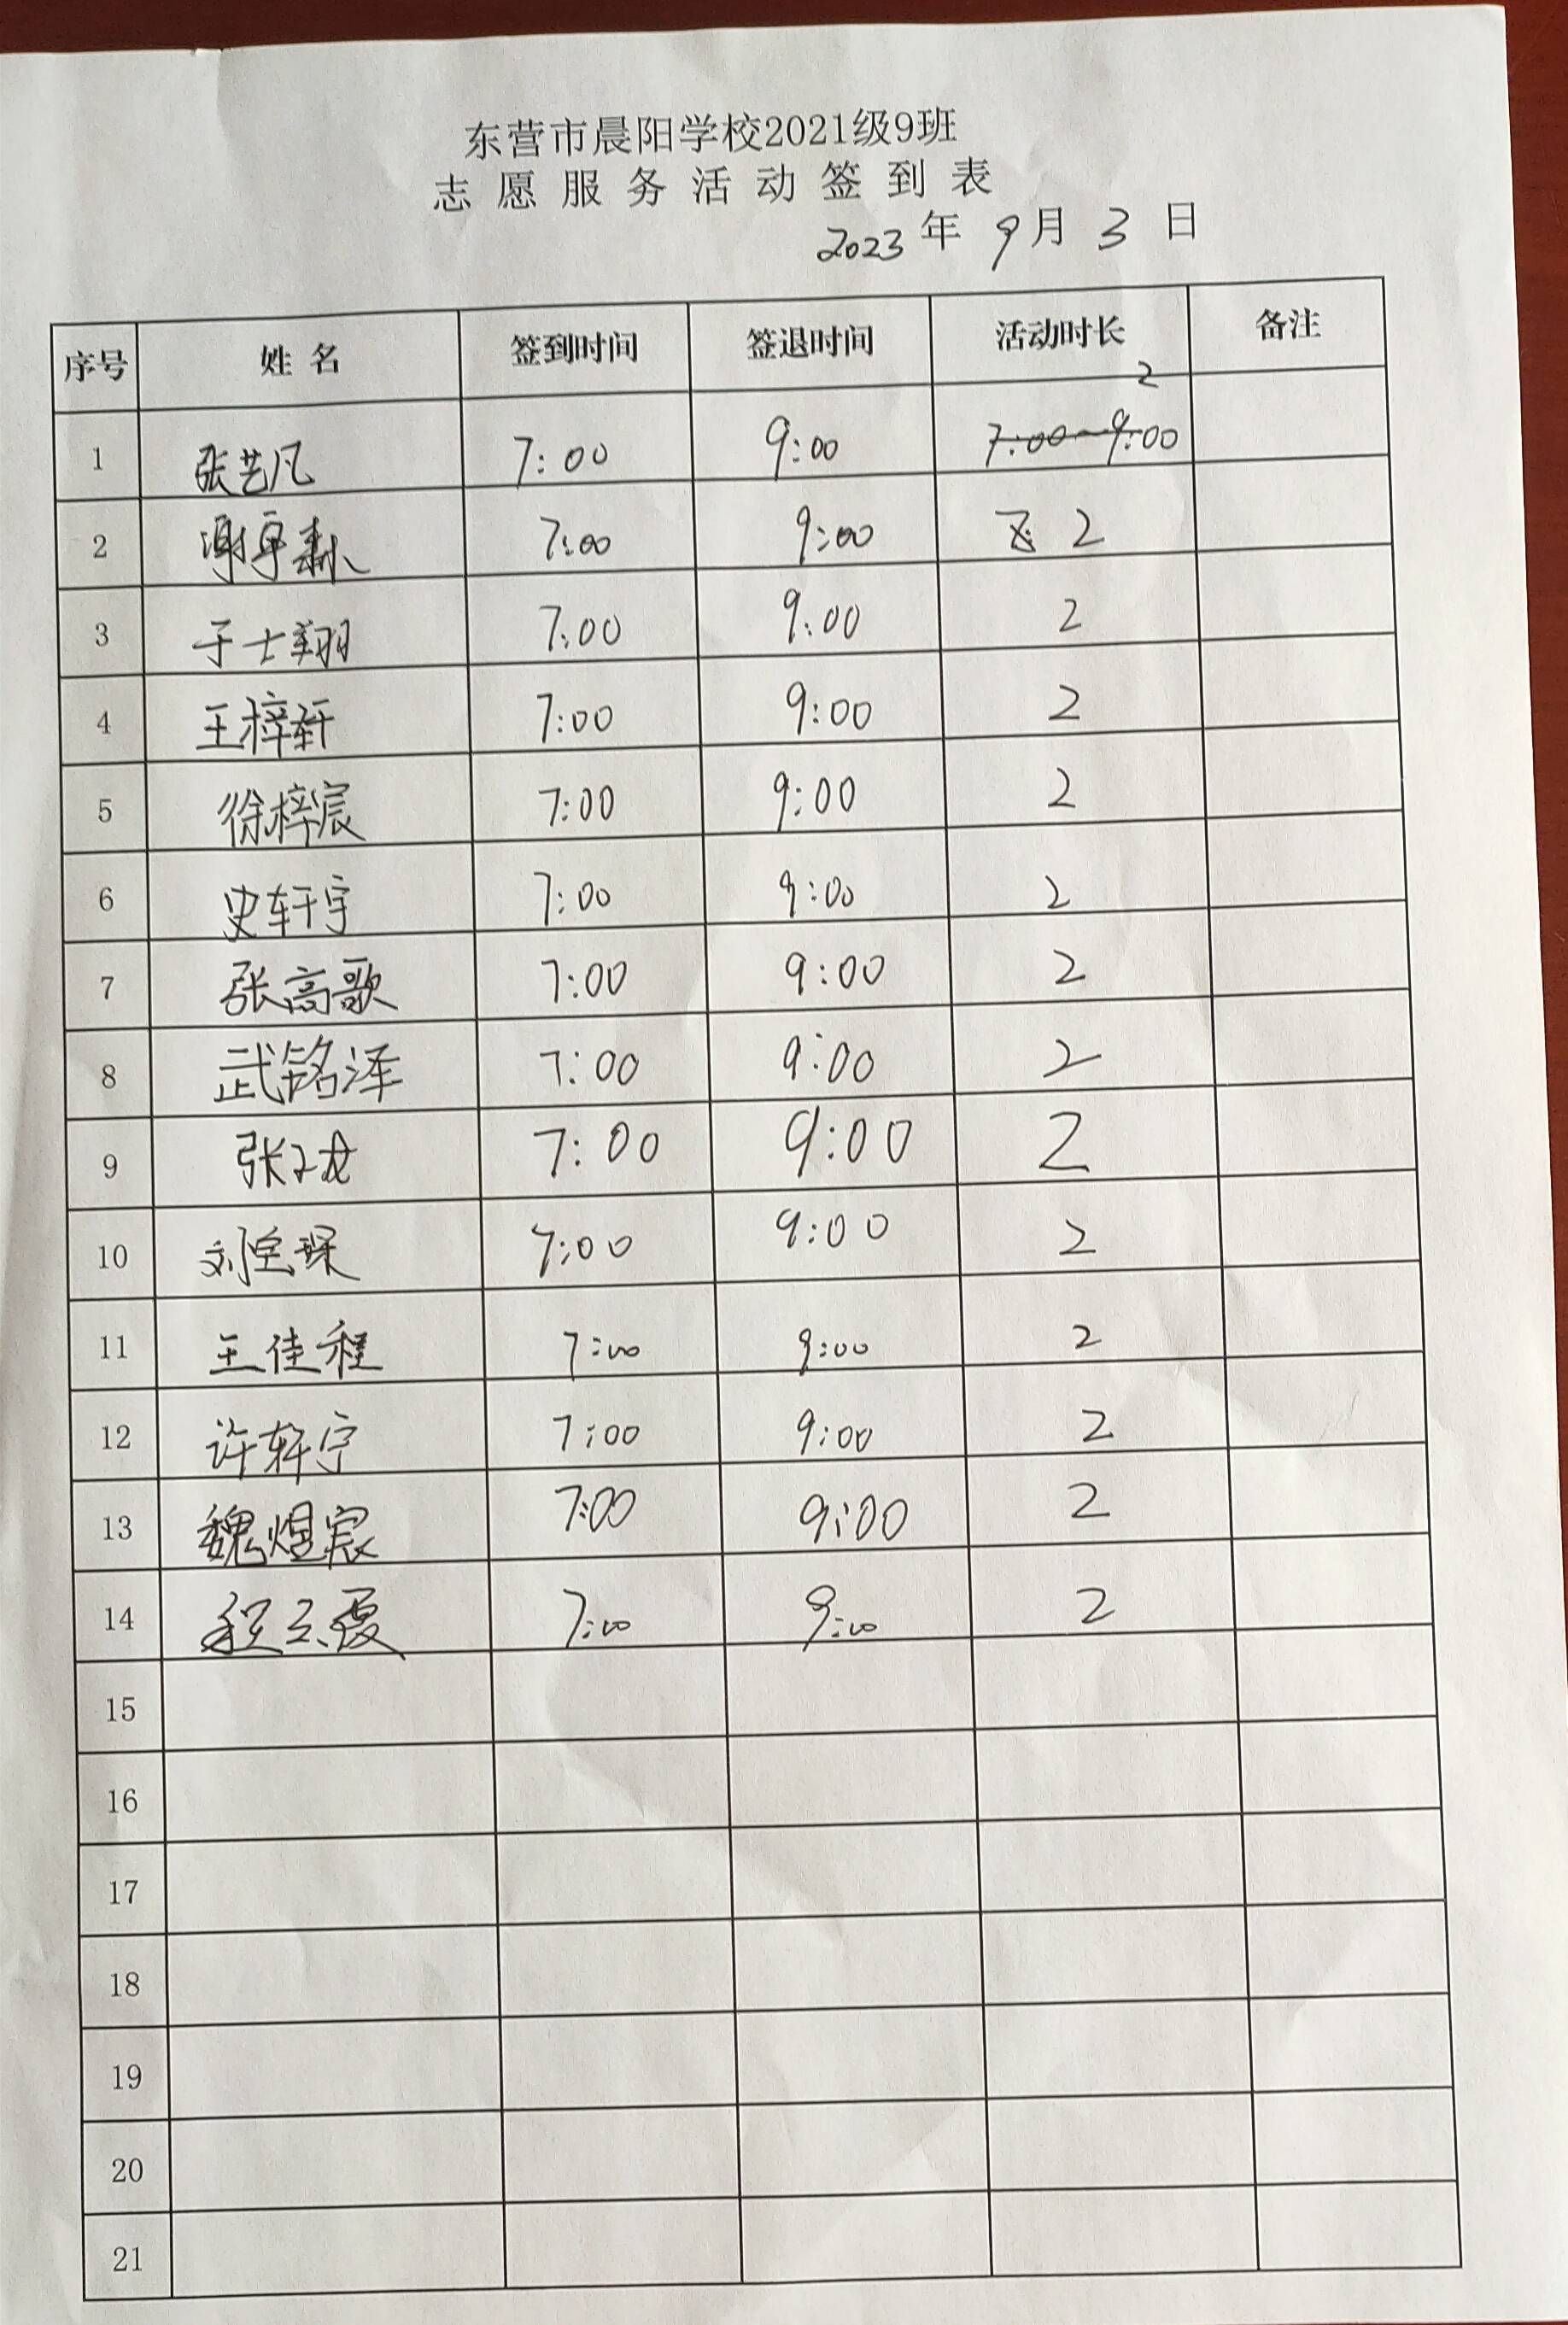 东营市晨阳学校2021级9班
志愿服务活动签到表
2023年9月3日
序号 姓名 签到时间 签退时间 活动时长 备注
1 张艺凡 7:00 9:00 7:00-9:00 2
2 谢卓霖 7:00 9:00 2
3 于士翔 7:00 9:00 2
4 王梓轩 7:00 9:00 2
5 徐梓宸 7:00 9:00 2
6 史轩宇 7:00 9:00 2
7 张高歌 7:00 9:00 2
8 武铭泽 7:00 9:00 2
9 7:00 9:00 2
10 刘宝琛 7:00 9:00 2
11 王佳程 7:00 9:00 2
12 许轩宁 7:00 9:00 2
13 魏煜宸 7:00 9:00 2
14 程云霞 7:00 9:00 2
15
16
17
18
19
20
21